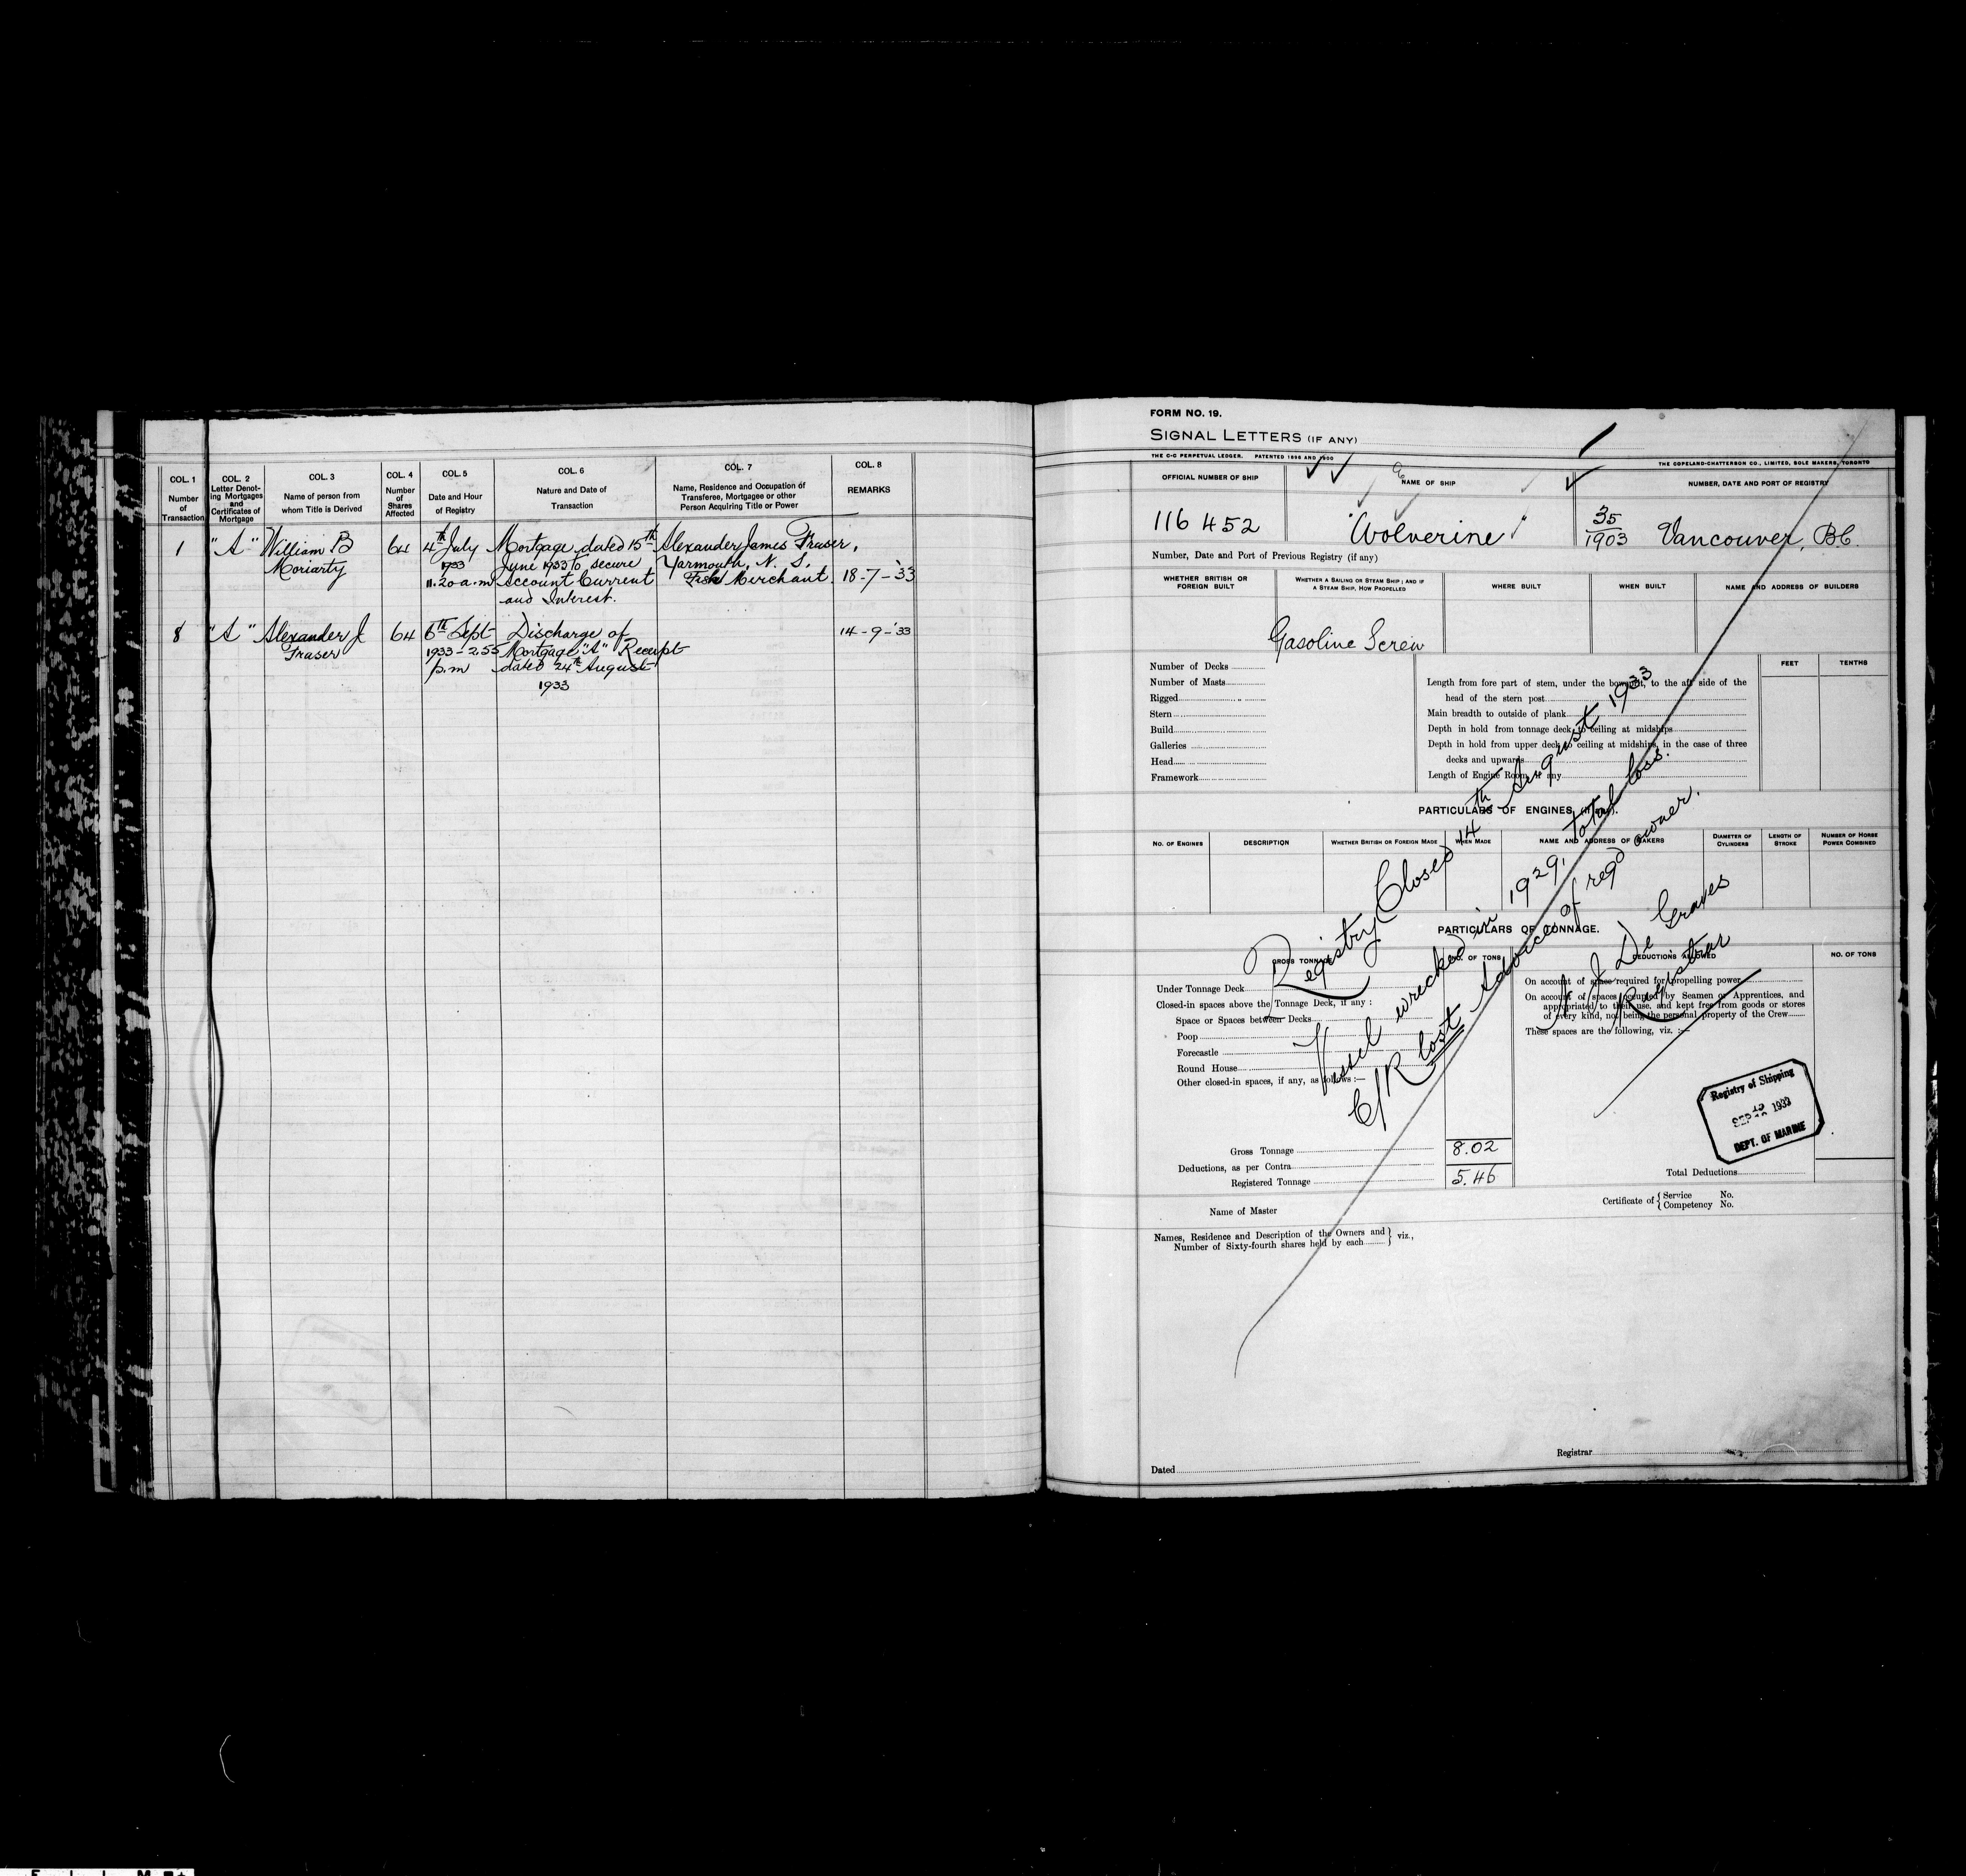 COL. 1
Number
of
Transaction
COL. 2
Letter Denot-
ing Mortgages
and
Certificates of
Mortgage
COL. 3
Name of person from
whom Title is Derived
COL. 4
Number
of
Shares
Affected
COL. 5
Date and Hour
of Registry
COL. 6
Nature and Date of
Transaction
COL. 7
Name, Residence and Occupation of
Transferee, Mortgagee or other
Person Acquiring Title or Power
COL. 8
REMARKS
1 "A" William B 64 4th July Mortgage dated 15th Alexander James Fraser,
Moriarty 1933 June 1933 to secure Yarmouth, N. S.
11.20 a.m Account Current Fish Merchant. 18-7-'33
and Interest.
8 "A" Alexander J 64 6th Sept Discharge of 14-9-'33
Fraser 1933-2.55 Mortgage "A" Receipt
p.m dated 24th August
1933
FORM NO. 19.
SIGNAL LETTERS (IF ANY)
THE C-C PERPETUAL LEDGER. PATENTED 1896 AND 1900
THE COPELAND-CHATTERSON CO., LIMITED, SOLE MAKERS, TORONTO
OFFICIAL NUMBER OF SHIP
NAME OF SHIP
NUMBER, DATE AND PORT OF REGISTRY
116452 "Wolverine" 35/1903 Vancouver, B.C.
Number, Date and Port of Previous Registry (if any)
WHETHER BRITISH OR
FOREIGN BUILT
WHETHER A SAILING OR STEAM SHIP; AND IF
A STEAM SHIP, HOW PROPELLED
WHERE BUILT
WHEN BUILT
NAME AND ADDRESS OF BUILDERS
Gasoline Screw
Number of Decks
Number of Masts
Rigged
Stern
Build
Galleries
Head
Framework
FEET
TENTHS
Length from fore part of stem, under the bowsprit, to the aft side of the
head of the stern post
Main breadth to outside of plank
Depth in hold from tonnage deck to ceiling at midships
Depth in hold from upper deck to ceiling at midships, in the case of three
decks and upwards
Length of Engine Room, if any
PARTICULARS OF ENGINES (if any).
NO. OF ENGINES
DESCRIPTION
WHETHER BRITISH OR FOREIGN MADE
WHEN MADE
NAME AND ADDRESS OF MAKERS
DIAMETER OF
CYLINDERS
LENGTH OF
STROKE
NUMBER OF HORSE
POWER COMBINED
Registry Closed 14th August 1933
Vessel wrecked in 1929, total loss.
C/R lost Advice of regd owner.
De Graves
Registrar
PARTICULARS OF TONNAGE.
GROSS TONNAGE
NO. OF TONS
DEDUCTIONS ALLOWED
NO. OF TONS
Under Tonnage Deck
Closed-in spaces above the Tonnage Deck, if any :
Space or Spaces between Decks
Poop
Forecastle
Round House
Other closed-in spaces, if any, as follows :—
On account of space required for propelling power
On account of spaces occupied by Seamen or Apprentices, and
appropriated to their use, and kept free from goods or stores
of every kind, not being the personal property of the Crew
These spaces are the following, viz. :—
Registry of Shipping
SEP 1933
DEPT. OF MARINE
Gross Tonnage 8.02
Deductions, as per Contra
Registered Tonnage 5.46
Total Deductions
Name of Master
Certificate of { Service No.
{ Competency No.
Names, Residence and Description of the Owners and } viz.,
Number of Sixty-fourth shares held by each
Registrar
Dated